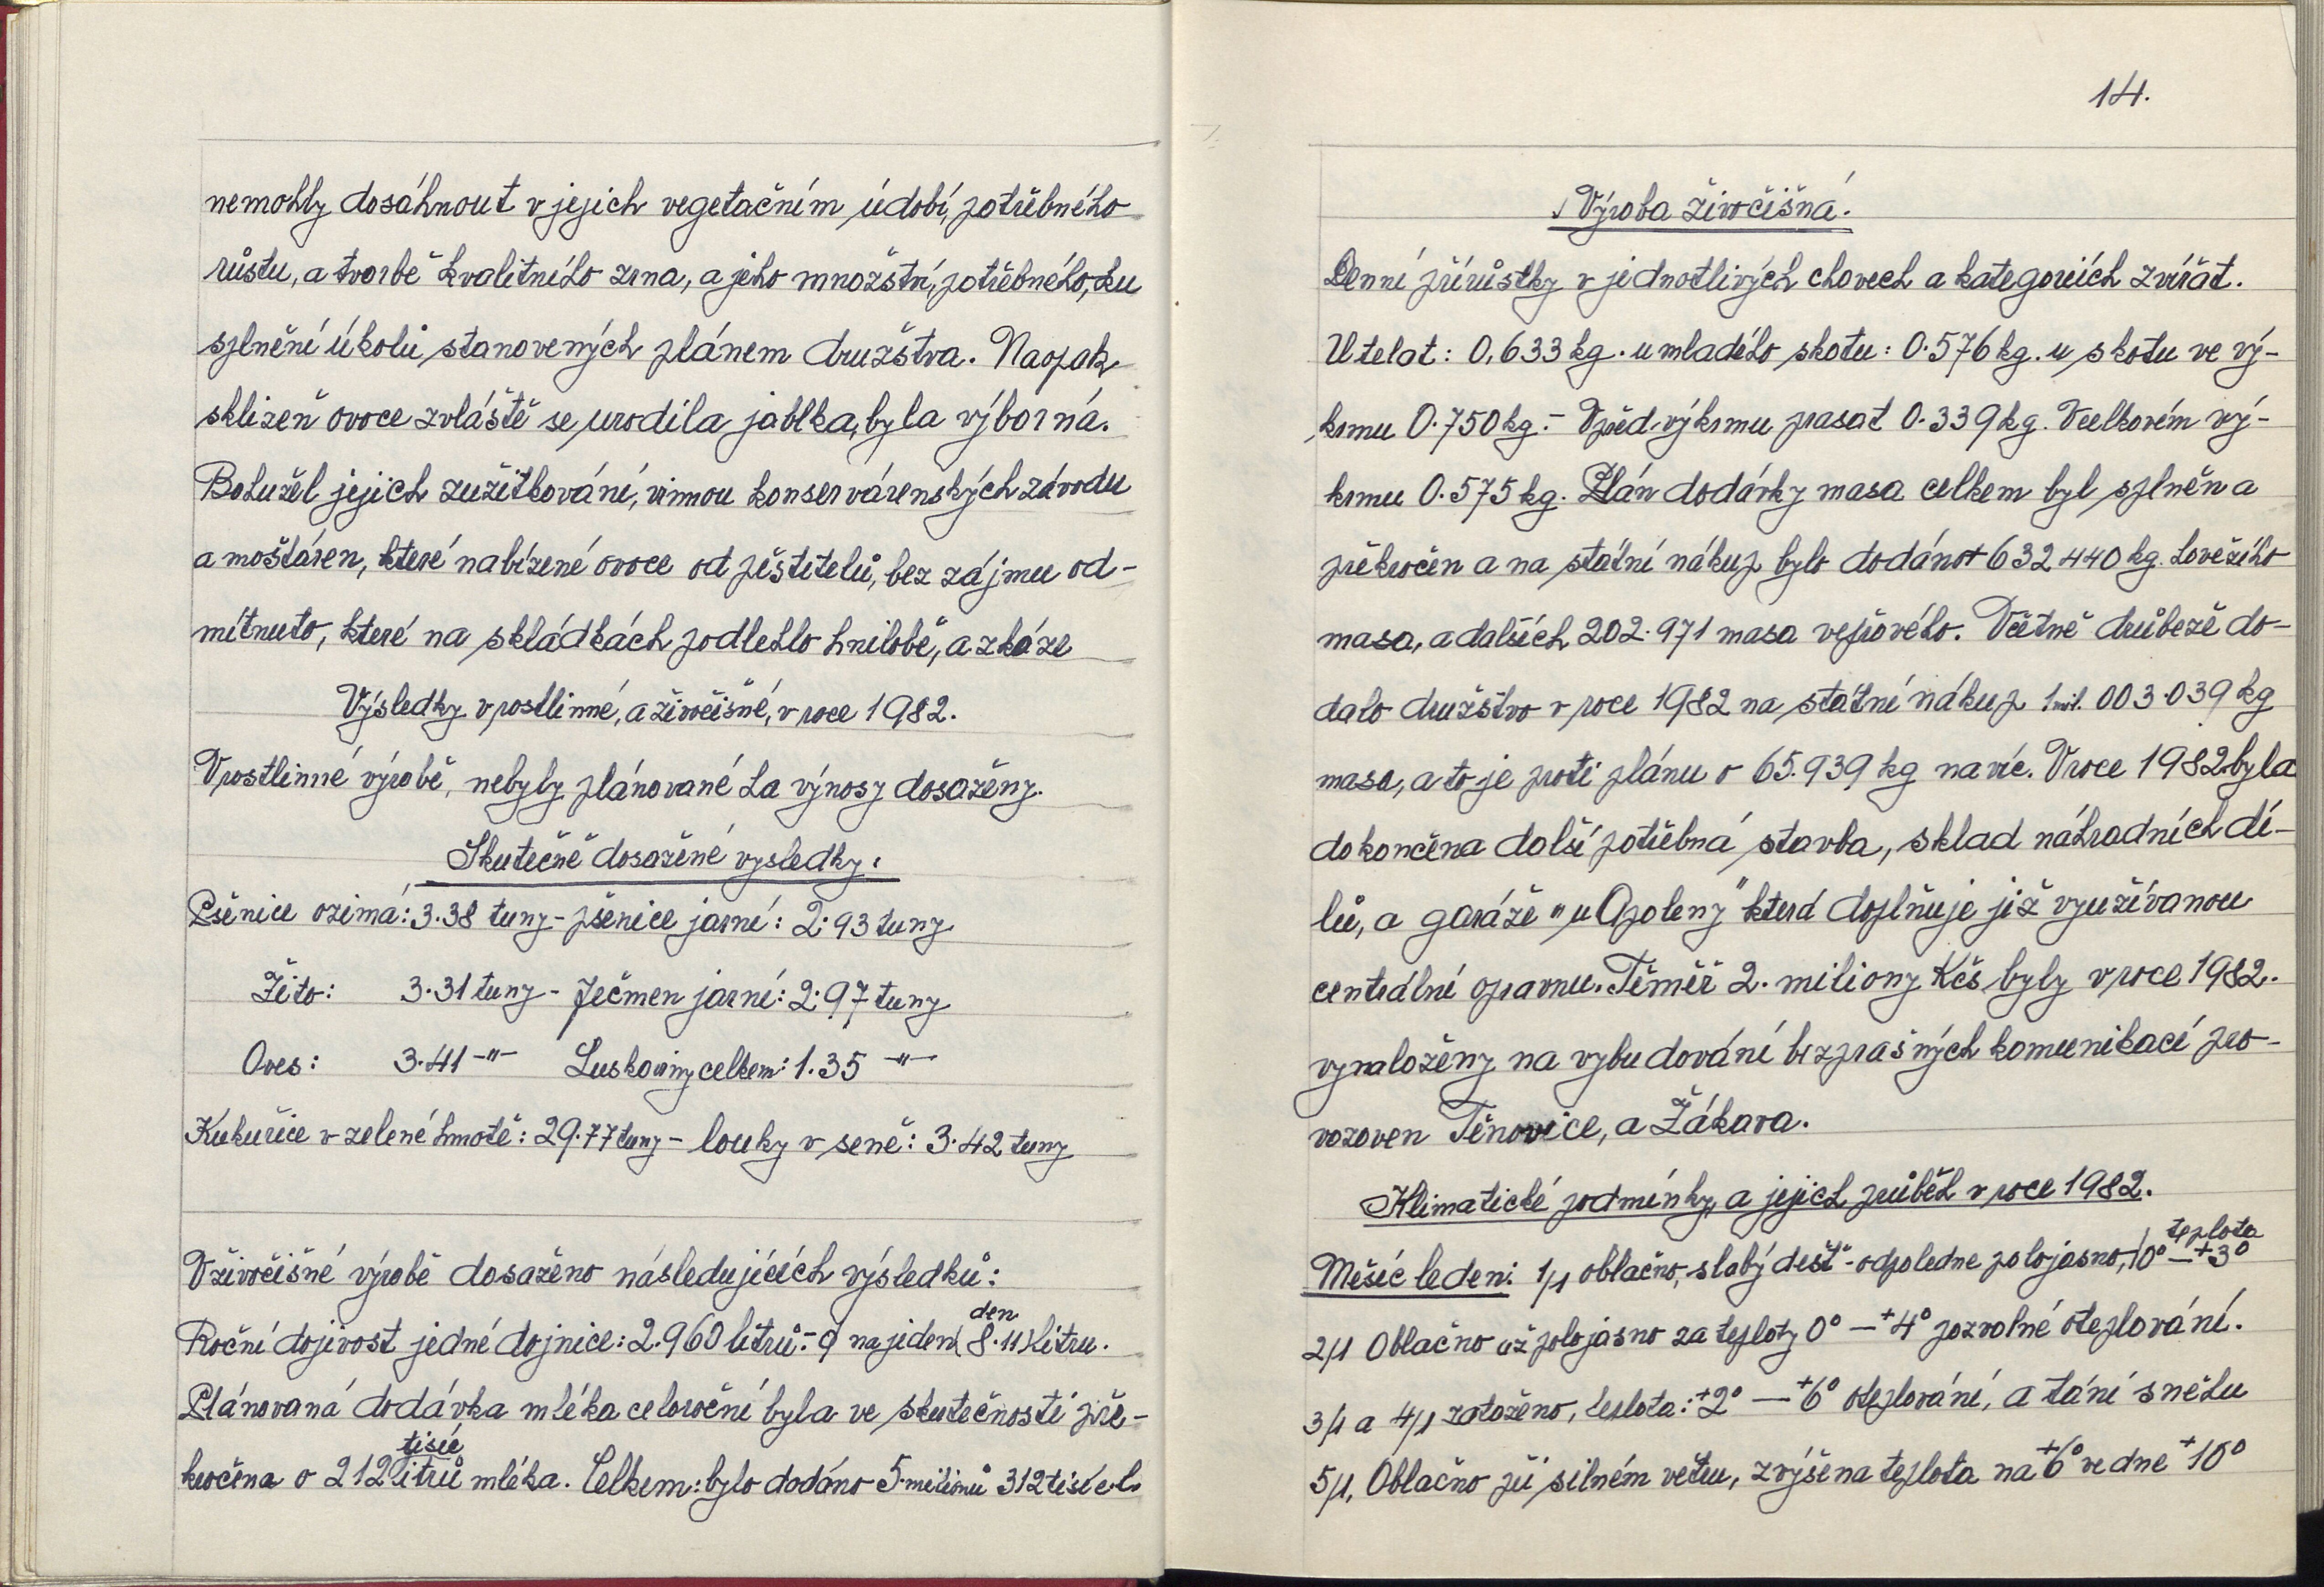 nemohly dosáhnout v jejich vegetačním údobí, potřebného
růstu, a tvorbě kvalitního zrna, a jeho množství, potřebného, ku
splnění úkolů stanovených plánem družstva. Naopak
sklizeň ovoce zvláště se urodila jablka, byla výborná.
Bohužel jejich zužitkování, vinnou konservárenských závodu
a moštáren, které nabízené ovoce od pěstitelů, bez zájmu od-
mítnuto, které na skládkách podlehlo hnilobě, a zkáze
Výsledky v rostlinné, a živočišné, v roce 1982.
V rostlinné výrobě, nebyly plánované ha výnosy dosažény.
Skutečně dosažené vysledky:
Pšěnice ozimá: 3.38 tuny - pšenice jarní: 2.93 tuny
Žito: 3.31 tuny - Ječmen jarní: 2.97 tuny
Oves: 3.41 -"- Luskoviny celkem: 1.35 -"-
Kukuřice v zelené hmotě: 29.77 tuny - louky v seně: 3.42 tuny
V živočišné výrobě dosažěno následujících výsledků:
Roční dojivost jedné dojnice: 2.960 litrů - na jeden den 8.11 litru.
Plánovaná dodávka mléka celoroční byla ve skutečnosti pře-
kročena o 212 tisíc litrů mléka. Celkem: bylo dodáno 5. milionů 312 tisíc l.
14.
Výroba živočišná.
Denní přírůstky v jednotlivých chovech a kategoriích zvířat.
U telat: 0,633 kg. u mladého skotu: 0.576 kg. u skotu ve vý-
krmu 0.750 kg. - V před-výkrmu prasat 0.339 kg. V celkovém vý-
krmu 0.575 kg. Plán dodávky masa celkem byl splněn a
překročen a na státní nákup bylo dodáno 632 440 kg. hovězího
masa, a dalších 202.971 masa vepřového. Včetně drůbeže do-
dalo družstvo v roce 1982 na státní nákup 1 mil. 003.039 kg
masa, a to je proti plánu o 65.939 kg navíc. V roce 1982 byla
dokončena další potřebná stavba, sklad náhradních dí-
lů, a garáže "u Apoleny" která doplňuje již využívanou
centrální opravnu. Téměř 2. miliony Kčs byly v roce 1982.
vynaložěny na vybudování bezprašných komunikací pro-
vozoven Těnovice, a Žákava.
Klimatické podmínky, a jejich průběh v roce 1982.
Měsíc leden: 1/1 oblačno, slabý dešť - odpoledne polojasno, teplota 0° - +3°
2/1 Oblačno až polojasno za teploty 0° - +4° pozvolné oteplování.
3/1 a 4/1 zataženo, teplota: +2° - +6° oteplování, a tání sněhu
5/1, Oblačno při silném větru, zvýšena teplota na +6° ve dne +10°